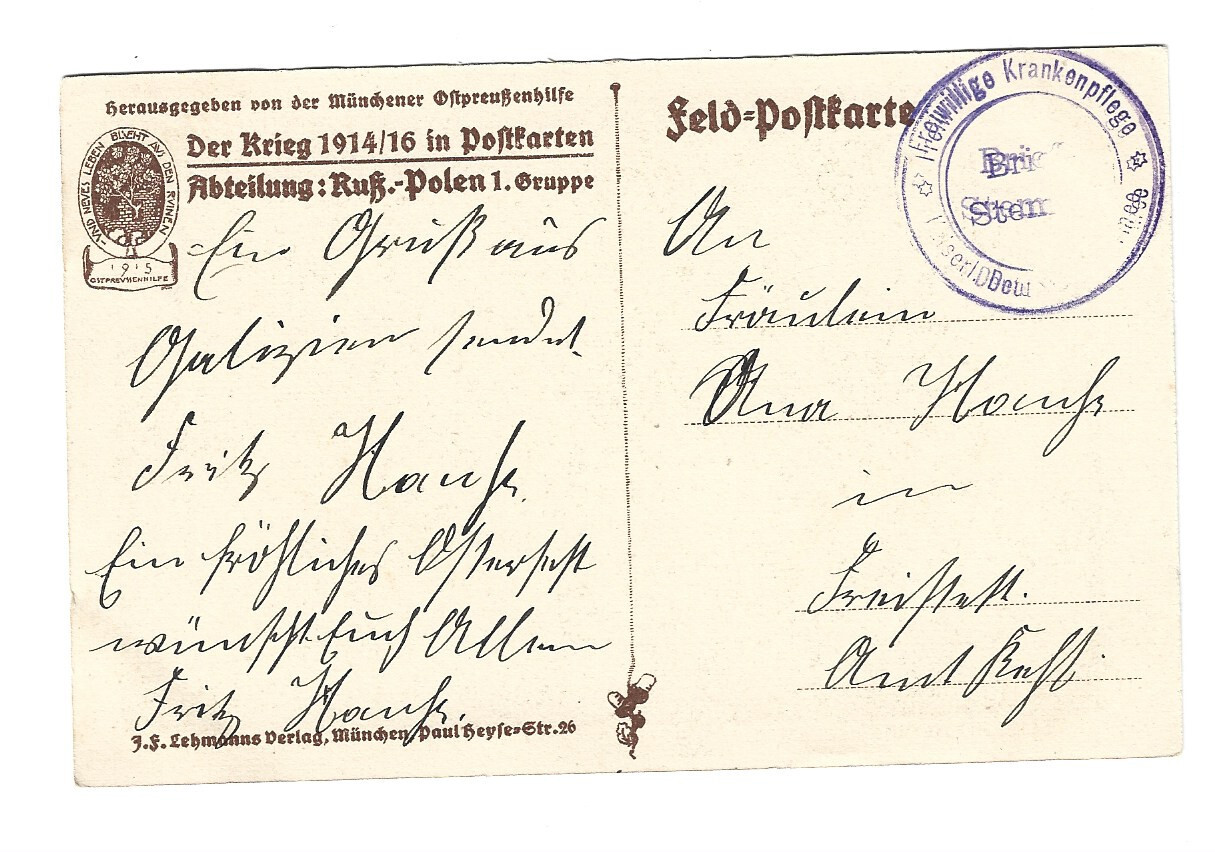 Herausgegeben von der Münchener Ostpreußenhilfe
Der Krieg 1914/16 in Postkarten
Abteilung: Ruß.-Polen 1. Gruppe
VND NEVES LEBEN BLVEHT AVS DEN RVINEN
1915
OSTPREVSSENHILFE
Ein Gruß aus
Galizien sendet
Fritz
Ein fröhliches Osterfest
wünscht Euch Allen
Fritz
J.F. Lehmanns Verlag, München, Paul Heyse-Str. 26
Feld-Postkarte
Freiwillige Krankenpflege
Brie
Stem
An
Fräulein
Anna
in
Freistett.
Amt Kehl.